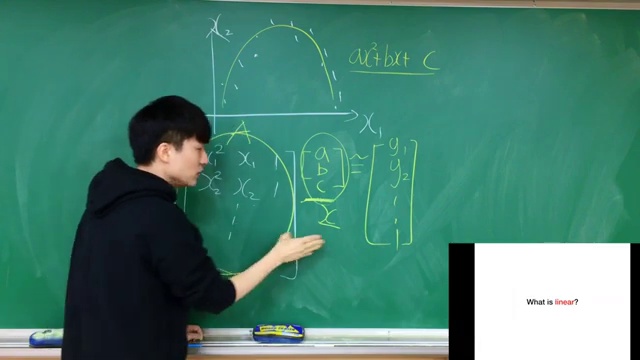 x₂
ax²+bx+c
x₁
A
x₁² x₁ 1
x₂² x₂ 1
a
b
c
x
≈
y₁
y₂
What is linear?